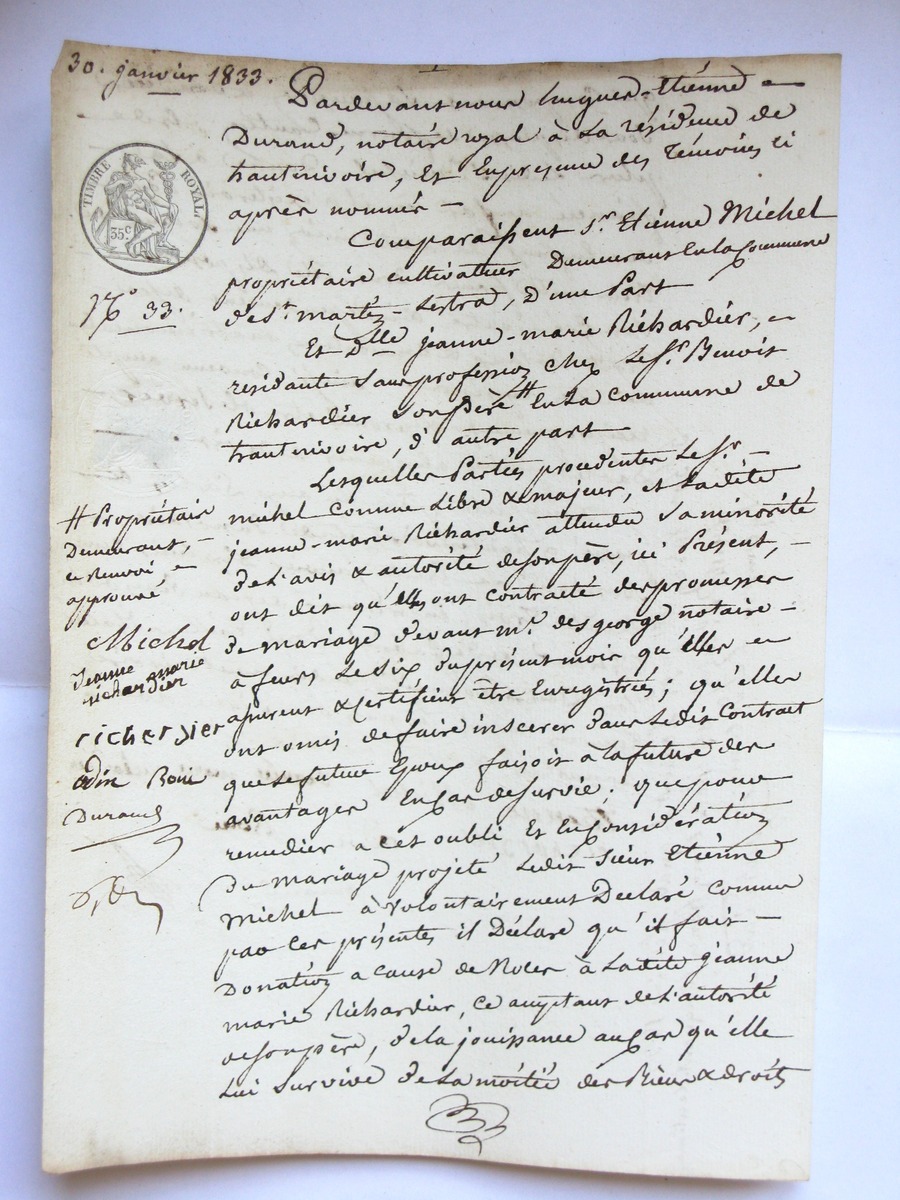 30. janvier 1833.
Pardevant nous hugues-Etiénne
Durand, notaire royal à La résidence de
hauterivoire, Et Enpresence des Témoins ci
après nommés –
Comparaissent Sr. Etiénne Michel
propriétaire cultivateur Demeurant En la Commune
de St. martin-Lestra, D'une Part
Et Dlle jeanne-marie Richardier,
residante Sans profession chez Le Sr. Benoit
Richardier Son père # En La commune de
hauterivoire, d'autre part
Lesquelles Parties procedentes Le Sr.
michel Comme Libre & majeur, et Ladite
jeanne-marie Richardier attendu Sa minorité
de L'avis & autorité de Son père, ici Présent,
ont dit qu'elles ont contracté des promesses
de mariage devant me. des george notaire
à feurs Le Six du présent mois qu'elles
assurent & certifient être Enregistrés; qu'elles
ont omis de faire inscerer dans Ledit Contract
que Le futur Epoux faisoit à La future des
avantages En cas de Survie; que pour
remedier a cet oubli Et En Considération
du mariage projeté Ledit Sieur Etiénne
Michel à volontairement Déclaré comme
par ces présentes il Déclare qu'il fait
Donation a cause de Noces à Ladite jeanne
marie Richardier, ce acceptant de L'autorité
de Son père, de la jouissance au cas qu'elle
Lui Survive de La moitié des Biens & droits
TIMBRE ROYAL.
35c
No 33.
# Propriétair
Demeurant,
ce Renvoi
approuvé
Michel
Jeanne
marie
richardier
richerdier
odin Boni
Durand